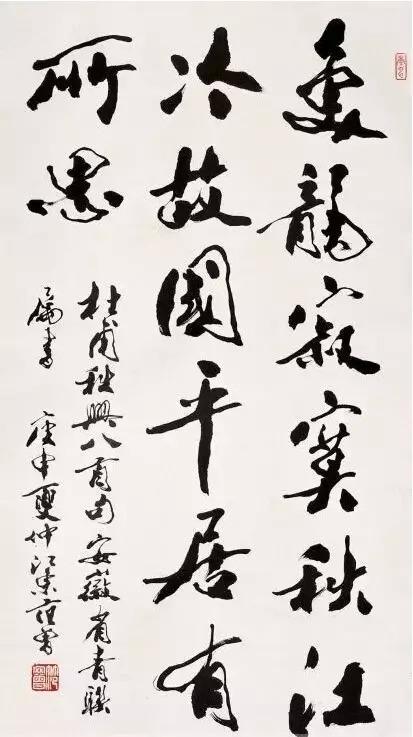 魚龍寂寞秋江
冷故國平居有
所思
杜甫秋興八首句安徽省青聯
屬書 庚申夏仲江東范曾